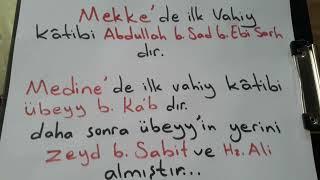 Mekke'de ilk Vahiy
kâtibi Abdullah b. Sad b. Ebi Sarh
dır.
Medine'de ilk vahiy kâtibi
übeyy b. Ka'b dır.
daha sonra übeyy'in yerini
zeyd b. Sabit ve Hz. Ali
almıştır...